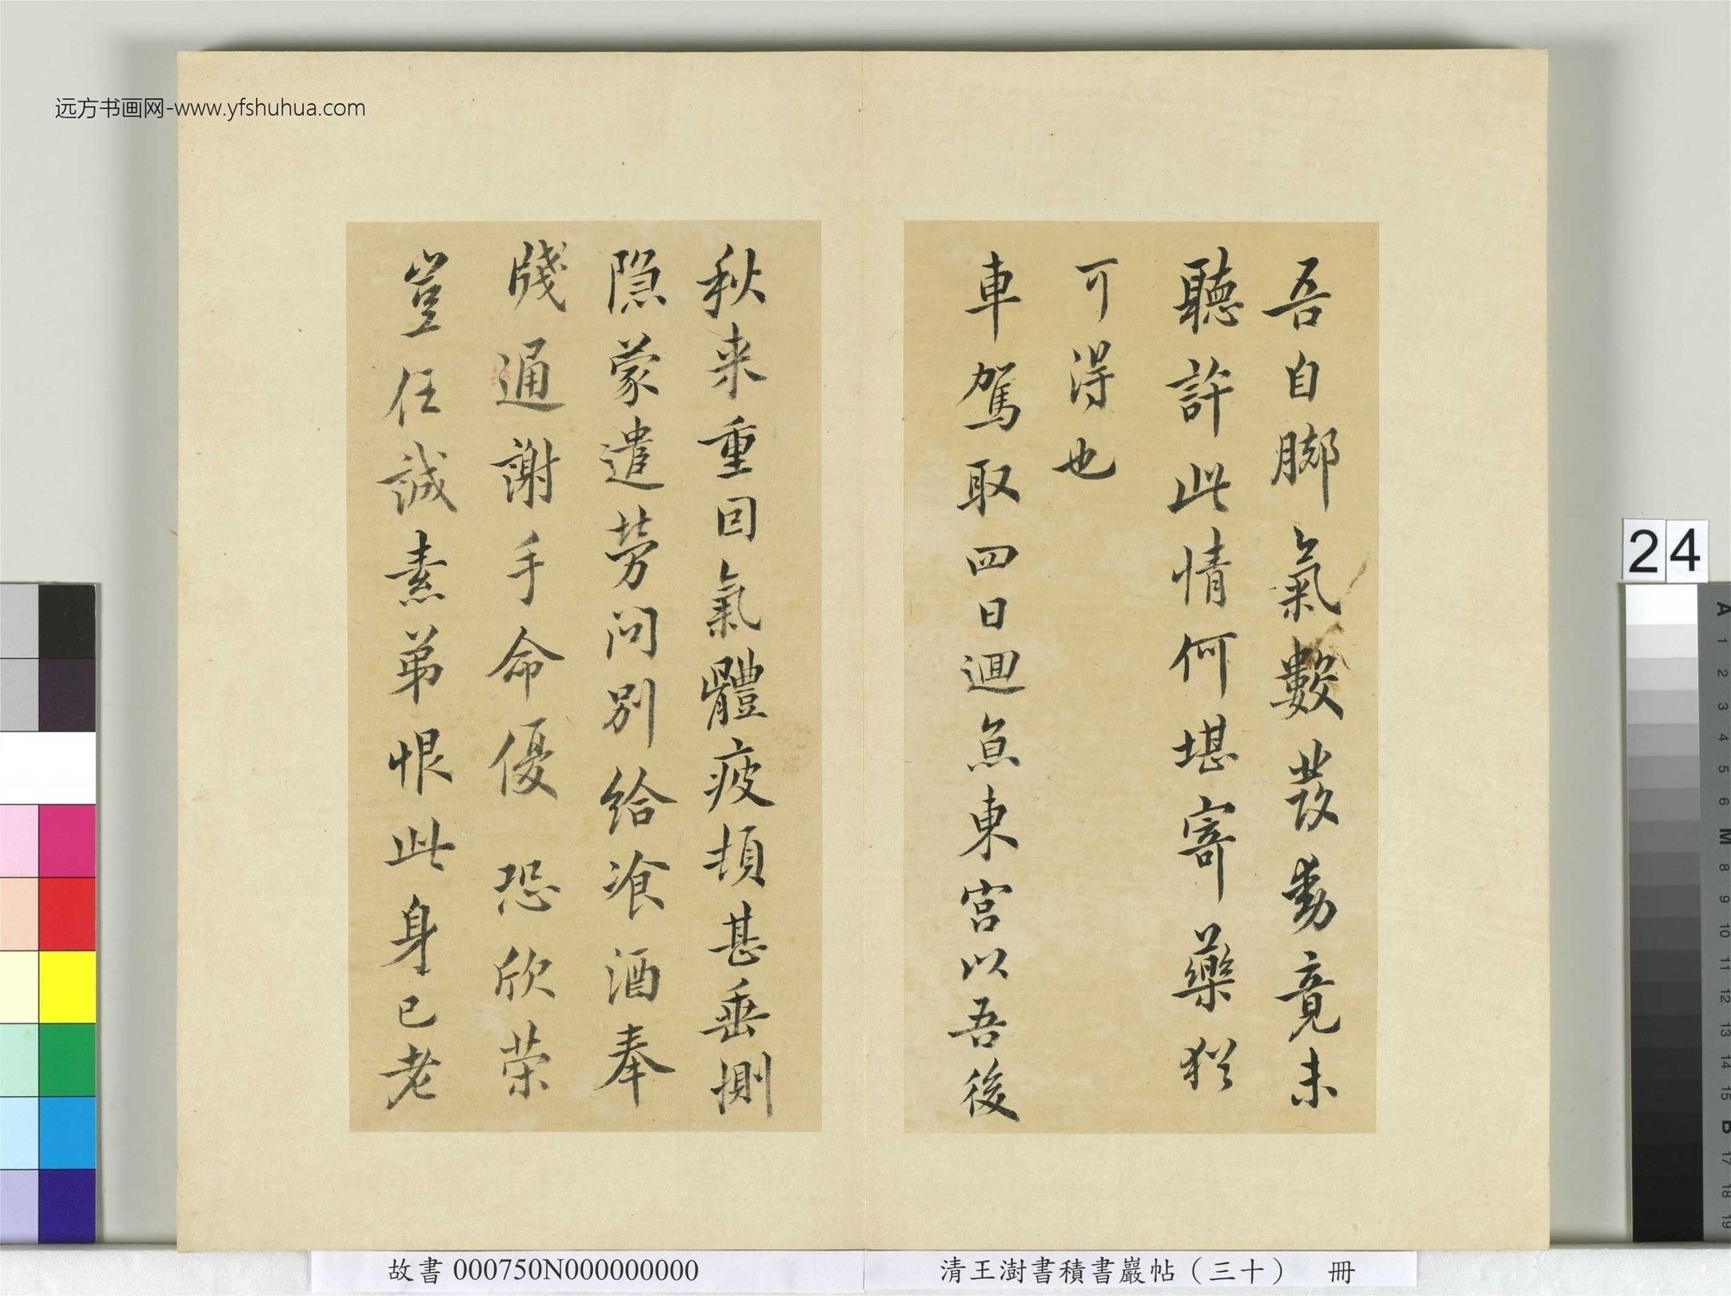 远方书画网-www.yfshuhua.com
吾自脚氣數發動竟未
聽許此情何堪寄藥猶
可得也
車駕取四日迴東宮以吾後
秋来重因氣體疲頓甚垂惻
隐蒙遣劳问别給飡酒奉
牋通謝手命優恐欣荣
豈任誠素弟恨此身已老
24
A 1 2 3 4 5 6 M 8 9 10 11 12 13 14 15 B 17 18 19
故書 000750N000000000
清王澍書積書巖帖（三十） 冊